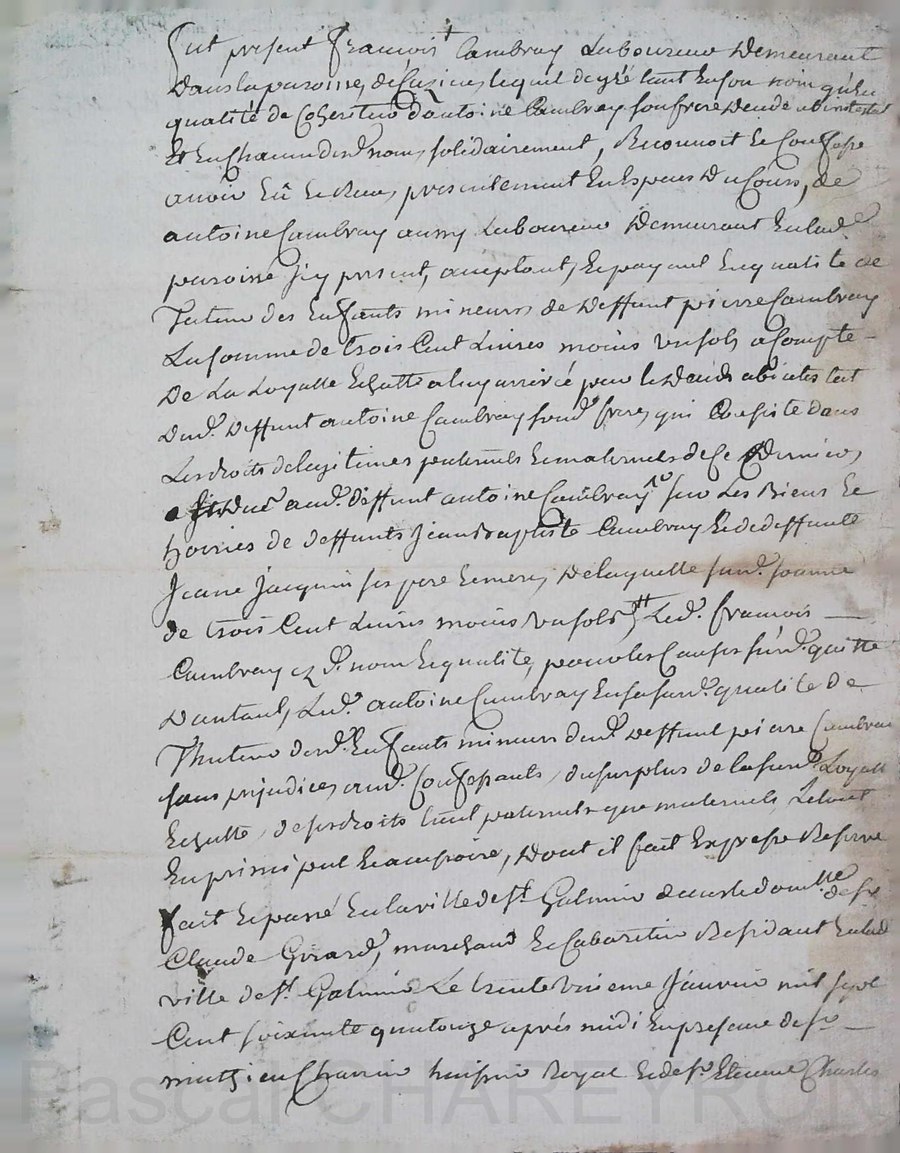 fut present françois Cambray Laboureur Demeurant
Dans la paroisse de Cuzieu, lequel de gré tant En son nom qu'En
qualité de Coheritier d'antoine Cambray son frere Decedé abintestat
Et En Chacun desd. noms solidairement, Reconnoit Et Confesse
avoir Eû Et Reçu presentement En Especes Du Cours, de
antoine Cambray aussy Laboureur Demeurant En lad.e
paroisse Jcy present, acceptant, Et payant En qualité de
Tuteur des Enfants mineurs de Deffunt pierre Cambray
La somme de trois Cent Livres moins un sols a Compte
De La Loyalle Echutte a luy arrivée par le Deceds abintestat
Dud. Deffunt antoine Cambray sond. frere, qui Consiste dans
Les droits de legitimes paternels Et maternels de Ce Dernier,
aud. deffunt antoine Cambray sur Les Biens Et
hoiries de deffunts Jean Baptiste Cambray Et de deffunte
Jeane Jacquin ses pere Et mere, De laquelle susd. somme
de trois Cent Livres moins un sols, Led. françois
Cambray ez d. nom Et qualité, pour les Causes susd. quitte
D'autant, Led. antoine Cambray En sa susd. qualité de
Thuteur desd. Enfants mineurs dud. Deffunt peirre Cambray
sans prejudice, aud. Confessants, du surplus de la susd. Loyalle
Echutte, de ses droits tant paternels que maternels, Le tout
En principal Et accessoire, Dont il fait Expresse Reserve
fait Et passé En la ville de St. Galmier dans le domicille de sr.
Claude Girard, marchand Et Cabaretier Residant En lad.
ville de St. Galmier Le trente unieme Janvier mil sept
Cent soixante quatorze après midi En presence de sr.
mathieu Charrin huissier Royal Et de sr. Etienne Charles
Pascal CHAREYRON